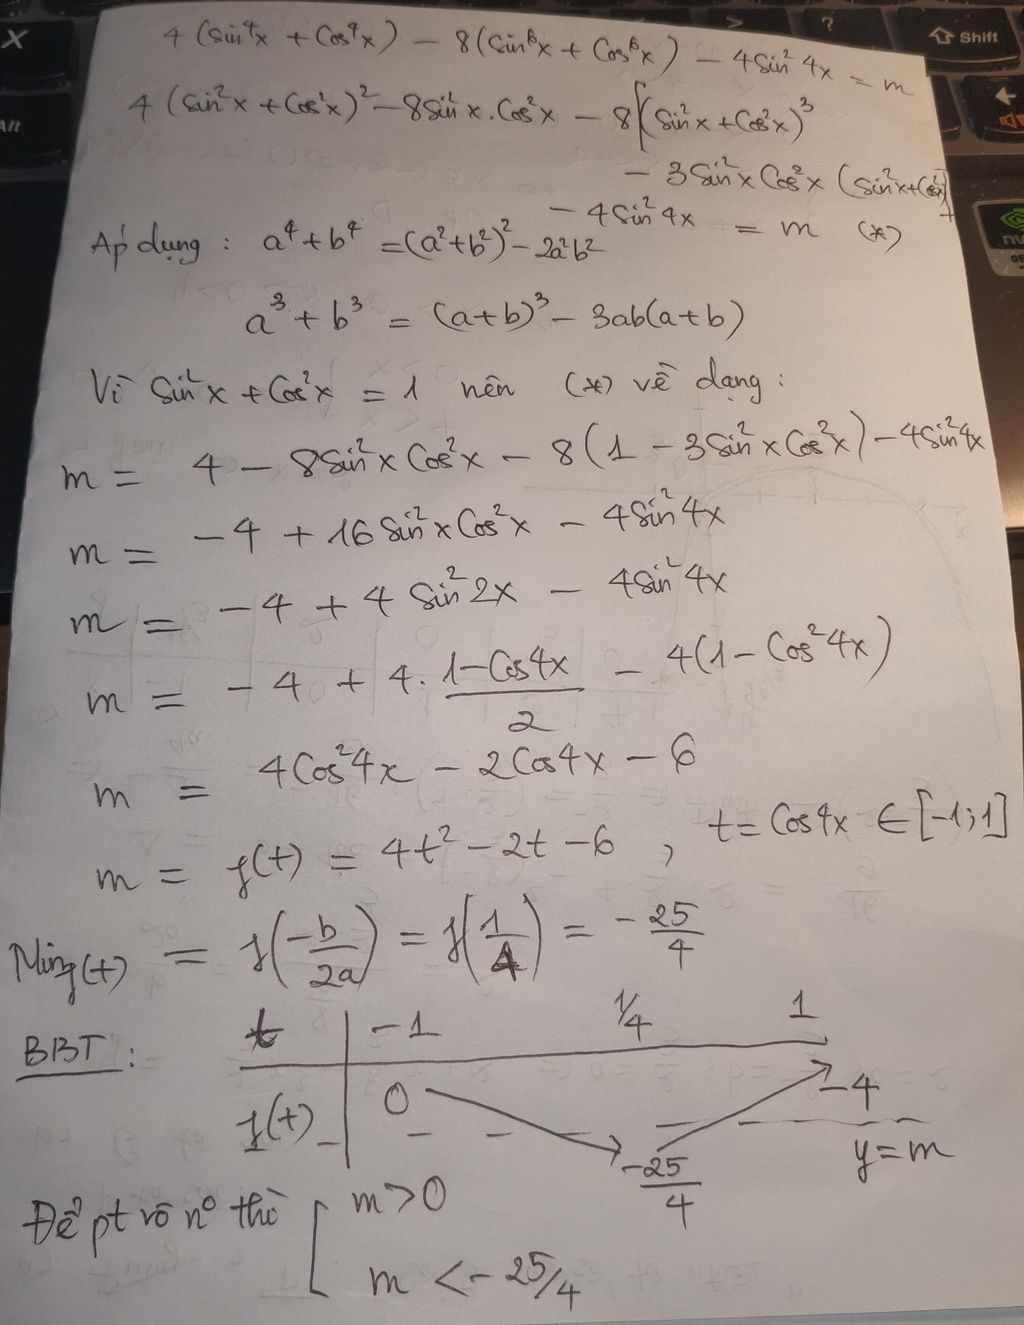 4(sin⁴x + Cos⁴x) − 8(Sin⁶x + Cos⁶x) − 4Sin²4x = m
4(Sin²x + Cos²x)² − 8Sin²x.Cos²x − 8[(Sin²x + Cos²x)³
− 3Sin²x Cos²x (Sin²x + Cos²x)]
− 4Sin²4x = m (*)
Áp dụng : a⁴ + b⁴ = (a² + b²)² − 2a²b²
a³ + b³ = (a+b)³ − 3ab(a+b)
Vì Sin²x + Cos²x = 1 nên (*) về dạng :
m = 4 − 8Sin²x Cos²x − 8(1 − 3Sin²x Cos²x) − 4Sin²4x
m = −4 + 16Sin²x Cos²x − 4Sin²4x
m = −4 + 4 Sin²2x − 4Sin²4x
m = −4 + 4. (1−Cos4x)/2 − 4(1 − Cos²4x)
m = 4Cos²4x − 2Cos4x − 6
m = f(t) = 4t² − 2t − 6 , t = Cos4x ∈ [−1;1]
Min f(t) = f(−b/2a) = f(1/4) = −25/4
BBT : t −1 1/4 1
f(t) 0 −25/4 −4
y = m
Để pt vô n⁰ thì [ m > 0
m < −25/4
X
Alt
>
?
Shift